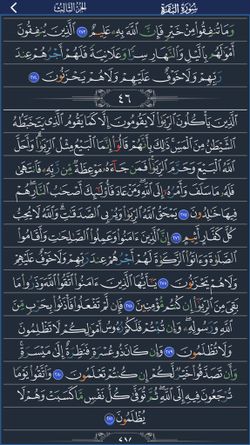 سُورَةُ البَقَرَةِ الجُزءُ الثَّالِث
وَمَا تُنفِقُوا۟ مِنْ خَيْرٍ فَإِنَّ ٱللَّهَ بِهِۦ عَلِيمٌ ٢٧٣ ٱلَّذِينَ يُنفِقُونَ
أَمْوَٰلَهُم بِٱلَّيْلِ وَٱلنَّهَارِ سِرًّا وَعَلَانِيَةً فَلَهُمْ أَجْرُهُمْ عِندَ
رَبِّهِمْ وَلَا خَوْفٌ عَلَيْهِمْ وَلَا هُمْ يَحْزَنُونَ ٢٧٤
٤٦
ٱلَّذِينَ يَأْكُلُونَ ٱلرِّبَوٰا۟ لَا يَقُومُونَ إِلَّا كَمَا يَقُومُ ٱلَّذِى يَتَخَبَّطُهُ
ٱلشَّيْطَٰنُ مِنَ ٱلْمَسِّ ذَٰلِكَ بِأَنَّهُمْ قَالُوٓا۟ إِنَّمَا ٱلْبَيْعُ مِثْلُ ٱلرِّبَوٰا۟ وَأَحَلَّ
ٱللَّهُ ٱلْبَيْعَ وَحَرَّمَ ٱلرِّبَوٰا۟ فَمَن جَآءَهُۥ مَوْعِظَةٌ مِّن رَّبِّهِۦ فَٱنتَهَىٰ
فَلَهُۥ مَا سَلَفَ وَأَمْرُهُۥٓ إِلَى ٱللَّهِ وَمَنْ عَادَ فَأُو۟لَٰٓئِكَ أَصْحَٰبُ ٱلنَّارِ هُمْ
فِيهَا خَٰلِدُونَ ٢٧٥ يَمْحَقُ ٱللَّهُ ٱلرِّبَوٰا۟ وَيُرْبِى ٱلصَّدَقَٰتِ وَٱللَّهُ لَا يُحِبُّ
كُلَّ كَفَّارٍ أَثِيمٍ ٢٧٦ إِنَّ ٱلَّذِينَ ءَامَنُوا۟ وَعَمِلُوا۟ ٱلصَّٰلِحَٰتِ وَأَقَامُوا۟
ٱلصَّلَوٰةَ وَءَاتَوُا۟ ٱلزَّكَوٰةَ لَهُمْ أَجْرُهُمْ عِندَ رَبِّهِمْ وَلَا خَوْفٌ عَلَيْهِمْ
وَلَا هُمْ يَحْزَنُونَ ٢٧٧ يَٰٓأَيُّهَا ٱلَّذِينَ ءَامَنُوا۟ ٱتَّقُوا۟ ٱللَّهَ وَذَرُوا۟ مَا
بَقِىَ مِنَ ٱلرِّبَوٰٓا۟ إِن كُنتُم مُّؤْمِنِينَ ٢٧٨ فَإِن لَّمْ تَفْعَلُوا۟ فَأْذَنُوا۟ بِحَرْبٍ مِّنَ
ٱللَّهِ وَرَسُولِهِۦ وَإِن تُبْتُمْ فَلَكُمْ رُءُوسُ أَمْوَٰلِكُمْ لَا تَظْلِمُونَ
وَلَا تُظْلَمُونَ ٢٧٩ وَإِن كَانَ ذُو عُسْرَةٍ فَنَظِرَةٌ إِلَىٰ مَيْسَرَةٍ
وَأَن تَصَدَّقُوا۟ خَيْرٌ لَّكُمْ إِن كُنتُمْ تَعْلَمُونَ ٢٨٠ وَٱتَّقُوا۟ يَوْمًا
تُرْجَعُونَ فِيهِ إِلَى ٱللَّهِ ثُمَّ تُوَفَّىٰ كُلُّ نَفْسٍ مَّا كَسَبَتْ وَهُمْ لَا
يُظْلَمُونَ ٢٨١
٤٧